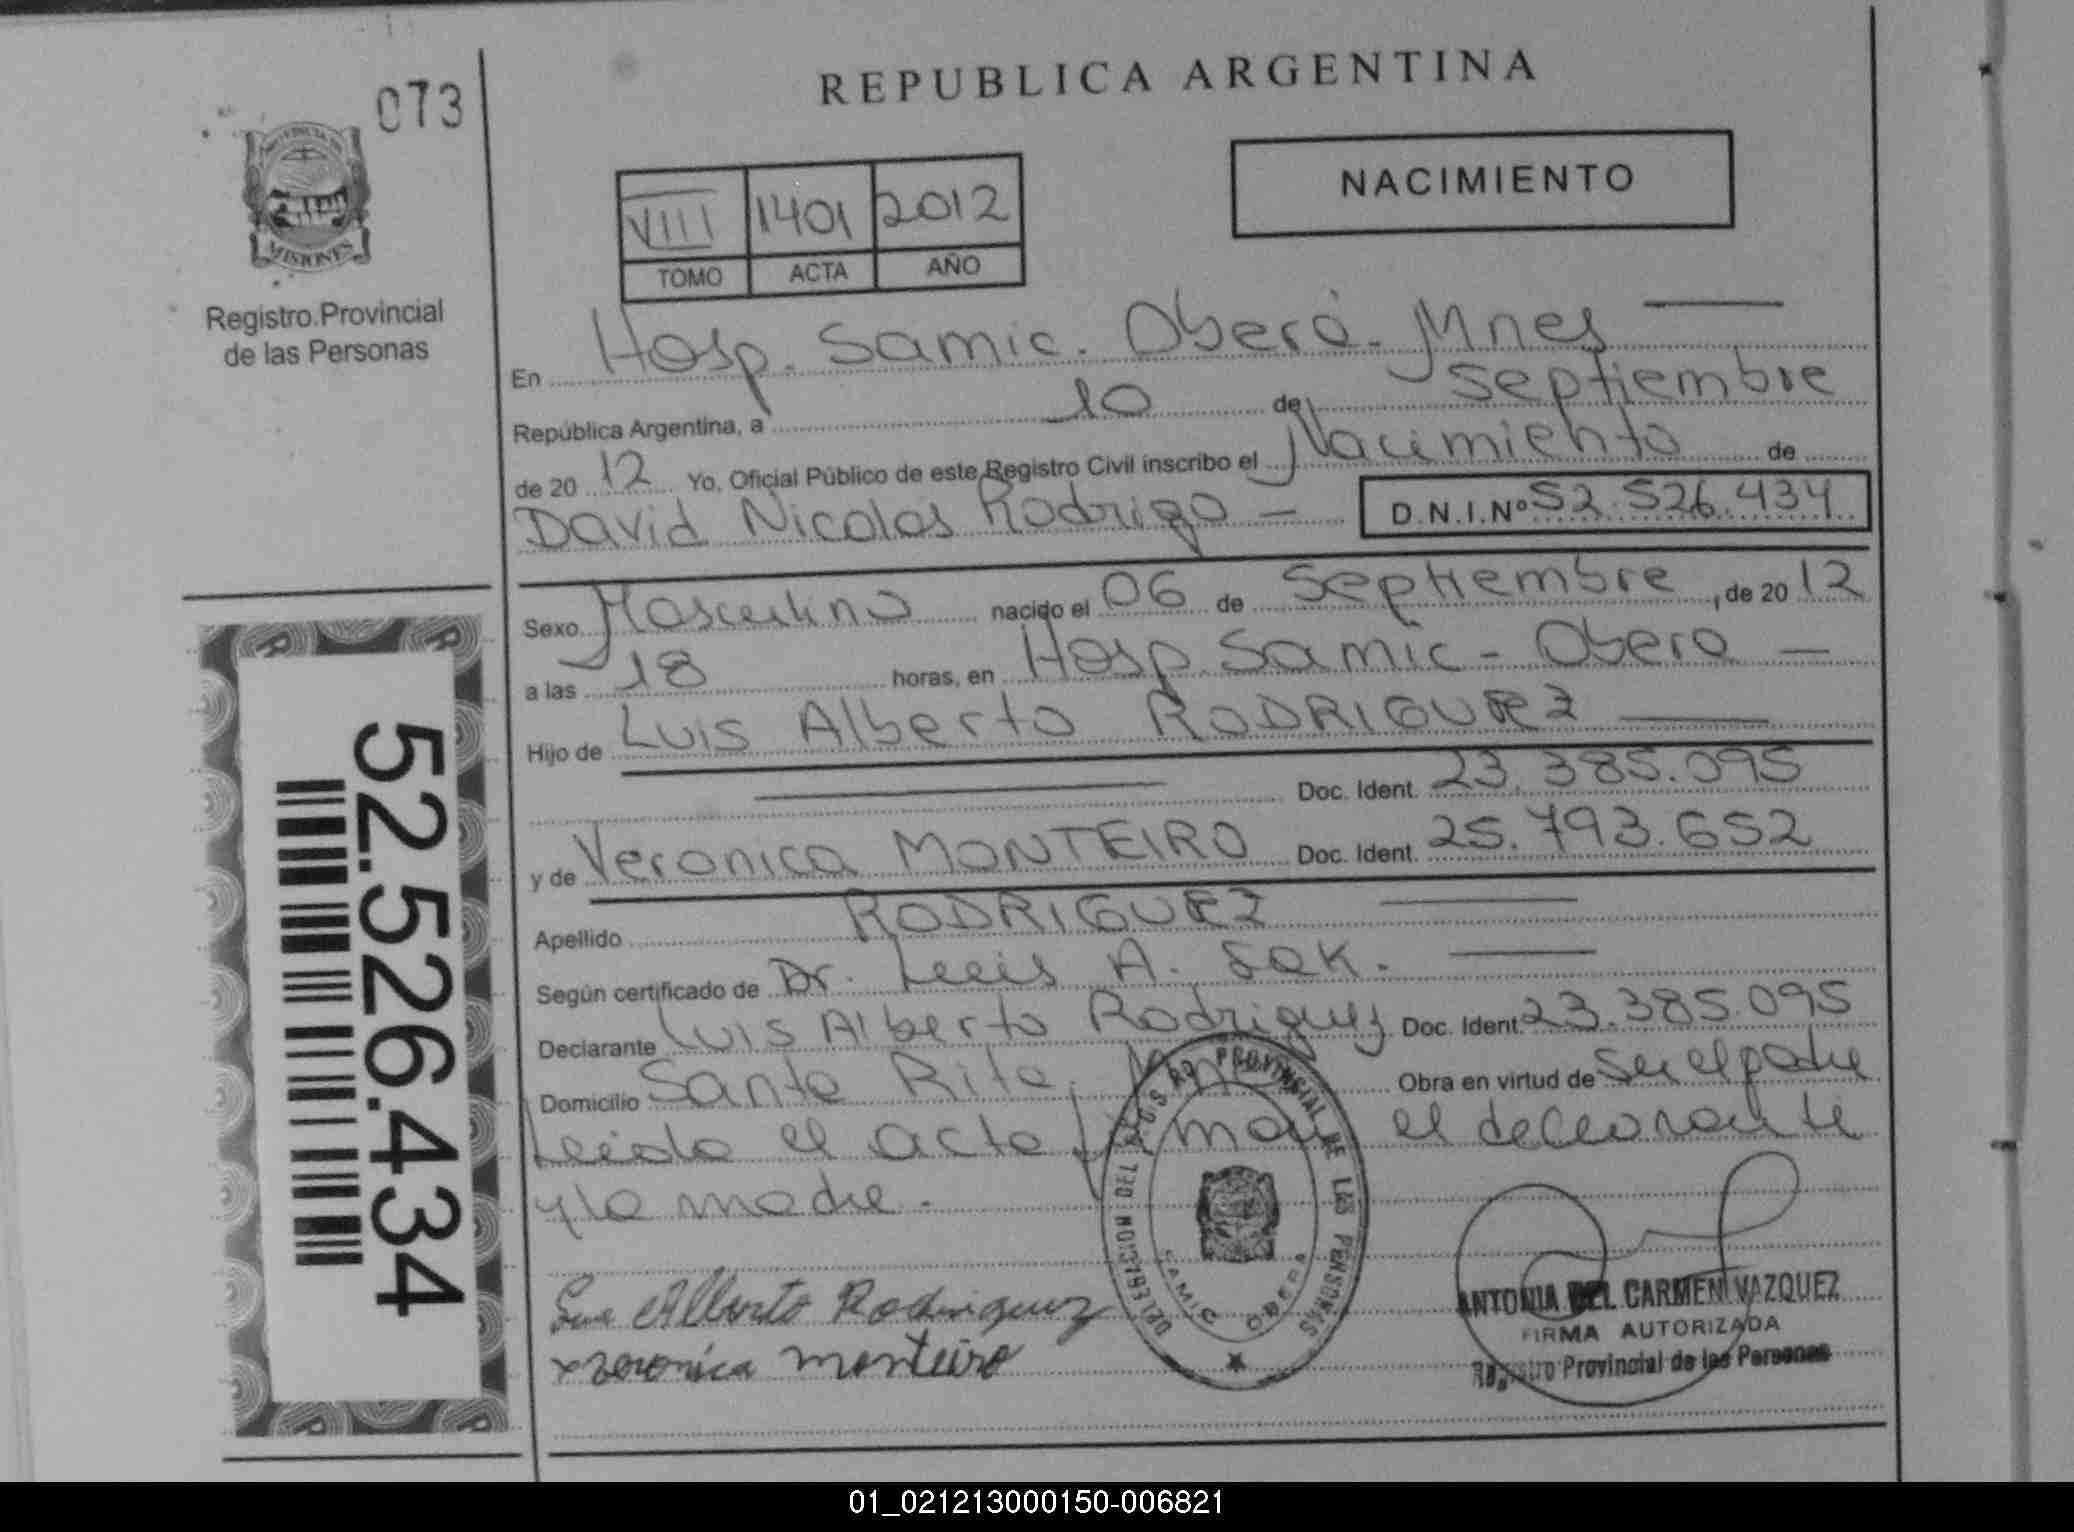 073
REPUBLICA ARGENTINA
PROVINCIA DE
MISIONES
Registro Provincial
de las Personas
VIII 1401 2012
TOMO ACTA AÑO
NACIMIENTO
En Hosp. Samic. Oberá. Mnes
República Argentina, a 10 de Septiembre
de 20 12 Yo, Oficial Público de este Registro Civil inscribo el Nacimiento de
David Nicolas Rodrigo — D.N.I.Nº 52.526.434
Sexo Masculino nacido el 06 de Septiembre, de 20 12
a las 18 horas, en Hosp. Samic - Obera —
Hijo de Luis Alberto RODRIGUEZ
Doc. Ident. 23.385.095
y de Veronica MONTEIRO Doc. Ident. 25.793.652
Apellido RODRIGUEZ
Según certificado de Dr. Luis A. Sak.
Declarante Luis Alberto Rodriguez Doc. Ident. 23.385.095
Domicilio Santa Rita, Mnes Obra en virtud de ser el padre
Leida el acta firman el declarante
y la madre.
52.526.434
Luis Alberto Rodriguez
x Veronica monteiro
PROVINCIAL DE LAS PERSONAS
DELEGACION DEL
SAMIC OBERA
ANTONIA DEL CARMEN VAZQUEZ
FIRMA AUTORIZADA
Registro Provincial de las Personas
01_021213000150-006821